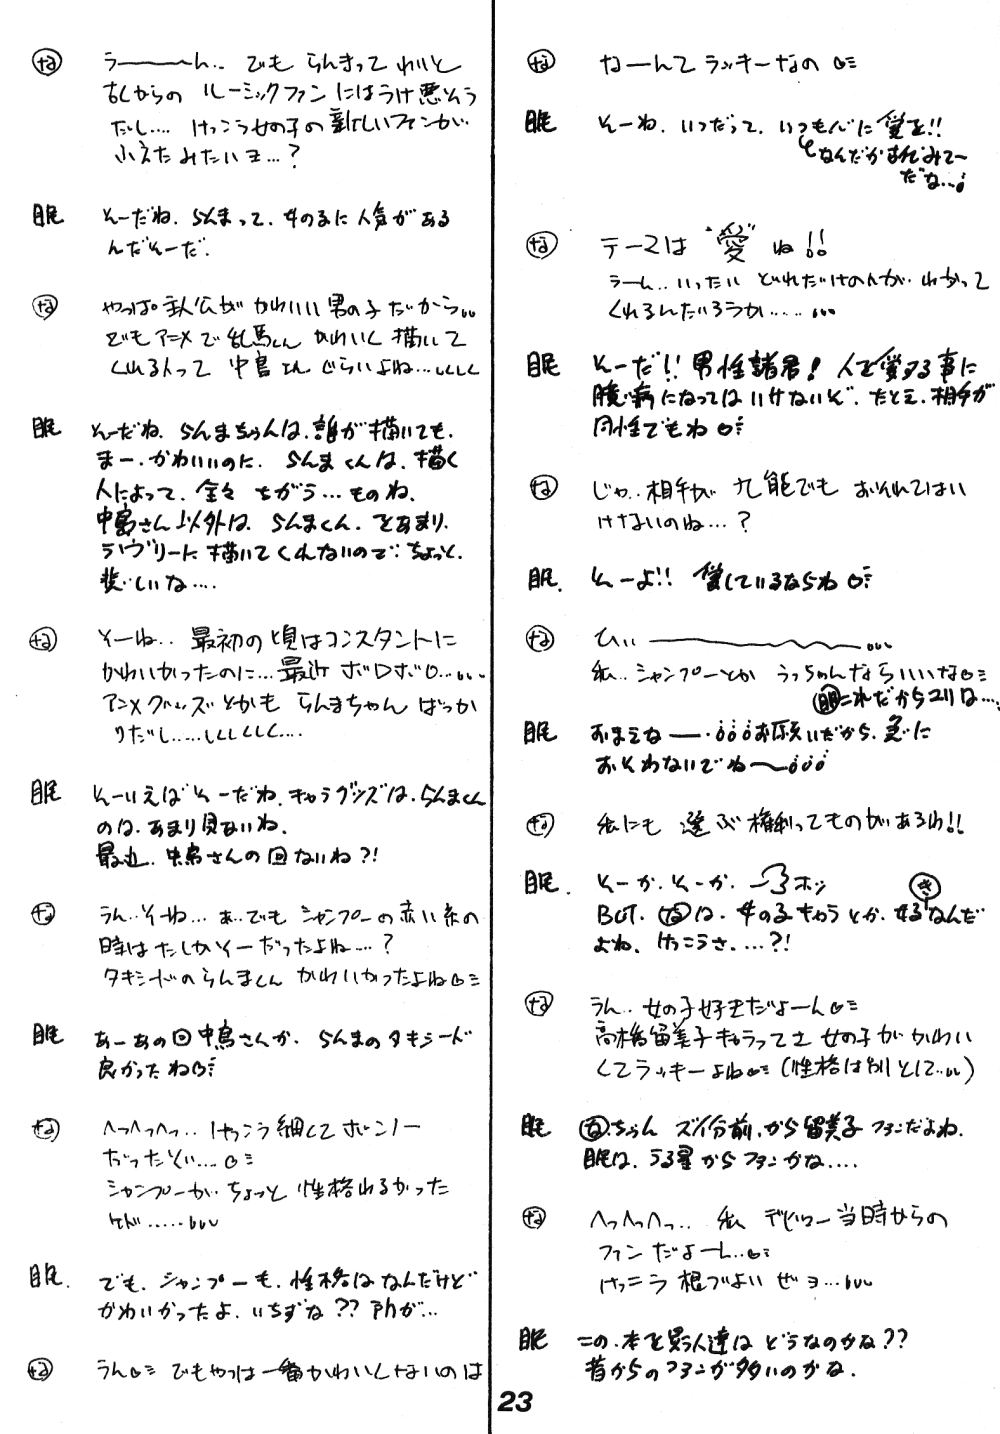 な うーーーん‥ でも らんまって わいと
古くからの ルーミックファン にはうけ悪そう
だし‥‥ けっこう女の子の新しいファンが
ふえたみたいョ…？
眠 そーだね. らんまって. 女の子に 人気がある
んだそーだ.
な やっぱ 主人公が かわいい 男の子 だから‥
でも アニメ で 乱馬くん かわいく 描いて
くれる人って 中嶌 さん ぐらいよね…しくしく
眠 そーだね. らんまちゃんは. 誰が 描いても.
まー. かわいいのに. らんま くんは. 描く
人によって. 全々 ちがう… ものね.
中嶌さん 以外は. らんまくん. を あまり.
ラヴリーに 描いてくれないので. ちょっと.
悲しいな‥‥
な そーね‥ 最初の 頃はコンスタントに
かわいかったのに…最近 ボロボロ…‥‥
アニメグッズとかも らんまちゃん ばっか
りだし‥‥しくしくしく‥‥
眠 そーいえば そーだね. キャラグッズは. らんまくん
のは. あまり 見ないね.
最近. 中嶌さんの 回 ないね?!
な うん‥そーね… あ‥でも シャンプーの 赤い糸の
時は たしか そーだったよね…？
タキシードの らんまくん かわいかったよね♡
眠 あーあの回 中嶌さんか. らんまの タキシード
良かった ね♡
な へっへっへっ‥ けっこう 細くて ボンノー
だったぞい…♡
シャンプーが ちょっと 性格わるかった
ケド……
眠. でも. シャンプーも. 性格は なんだけど
かわいかったよ. いちずな ?? 所が…
な うん♡ でも やっぱ 一番かわいくないのは
な なーんて ラッキーなの♡
眠 そーね. いつだって. いつも心に 愛を!!
なんだかまんがみてー
だな…
な テーマは “愛” ね!!
うーん‥いったい どれだけの人が わかって
くれるんだろうか……
眠 そーだ!! 男性諸君! 人を愛する事に
臆病になっては いけないぞ. たとえ. 相手が
同性でもね♡
な じゃ‥ 相手が 九能でも おそれては
いけないのね…？
眠. そーよ!! 愛しているならね♡
な ひぃーーー…
私‥ シャンプーとか うっちゃんなら いいな♡
眠 これだからユリは…
眠 おまえなーー. お願いだから. 急に
おそわないでねー
な 私にも 選ぶ権利ってものがあるわ!!
眠. そーか. そーか. ホッ
BUT. な は. 女の子キャラとか. 好きなんだ
よね. けっこうさ. …?!
な うん‥ 女の子好きだよーん♡
高橋留美子キャラってさ 女の子が かわい
くてラッキーよね♡ (性格は別として‥)
眠 なちゃん ズイ分前. から 留美子 ファンだよね.
眠は. うる星から ファンかな‥‥
な へっへっへっ‥ 私 デビュー当時からの
ファン だよーん‥♡
けっこう 根づよい ぜョ…
眠 この. 本を 買う人達は どうなのかな??
昔からの ファンが多いのかな.
23